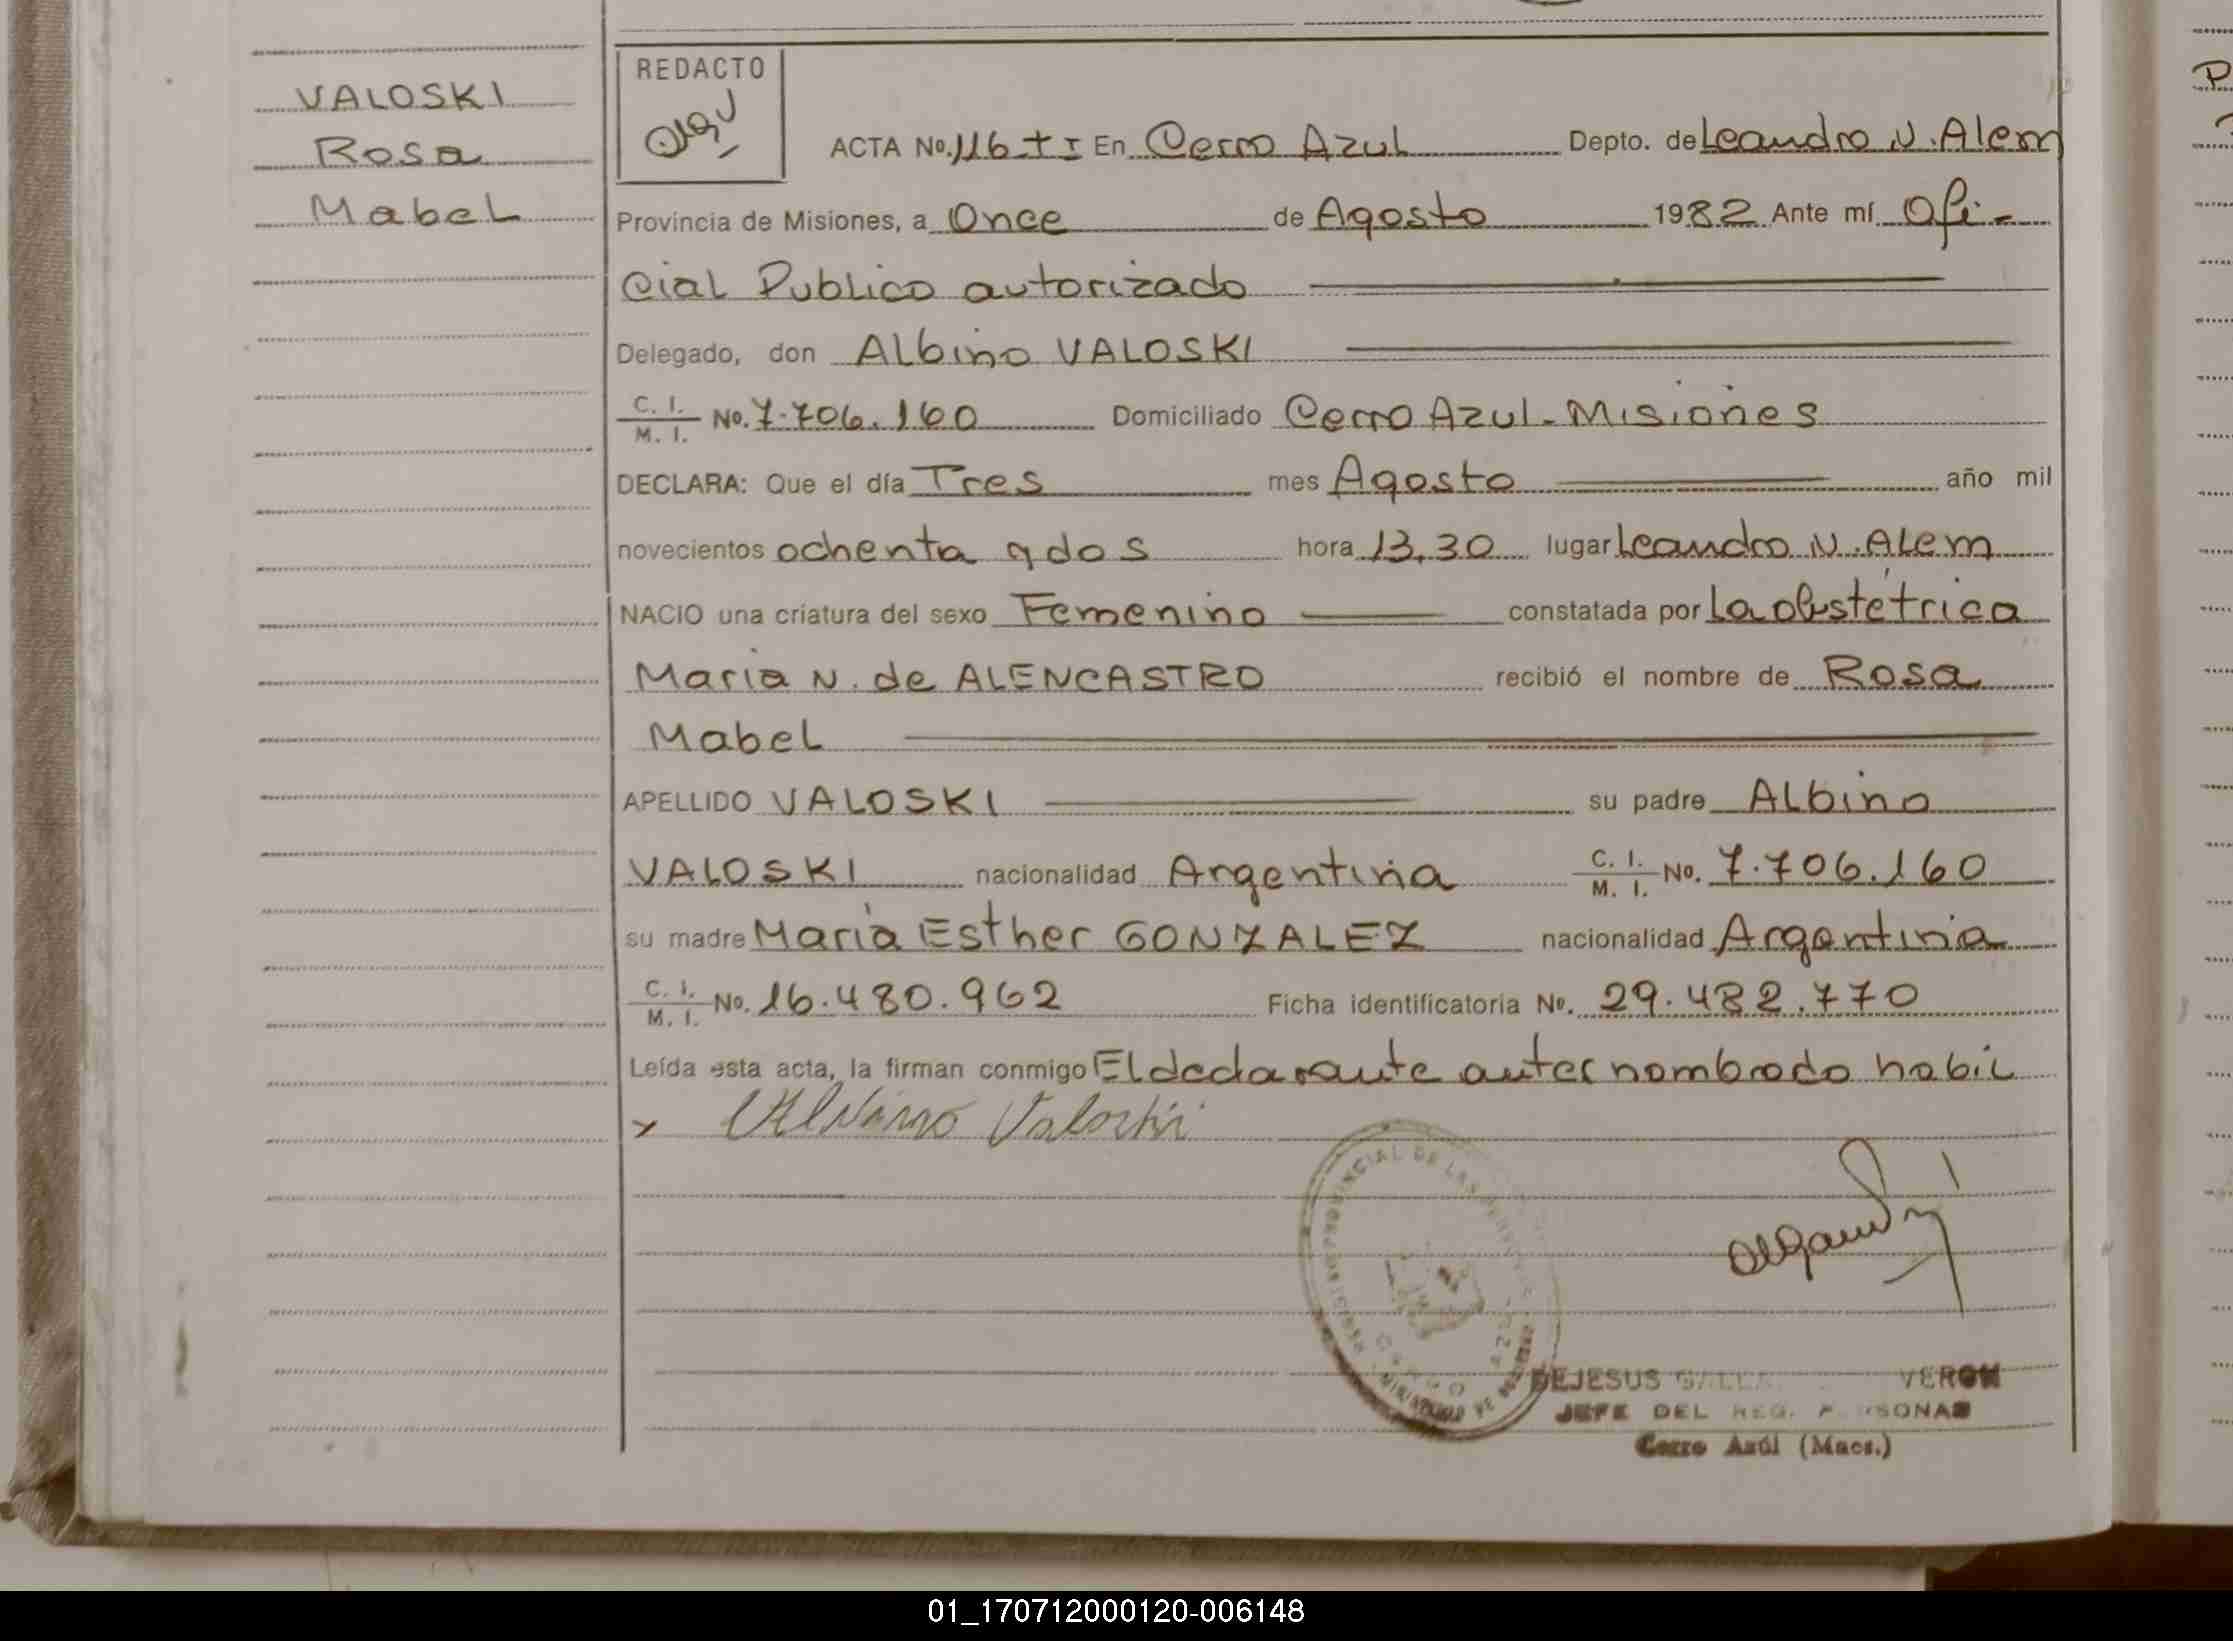 VALOSKI
Rosa
Mabel
REDACTO
ACTA No. 116 T I En Cerro Azul Depto. de Leandro N. Alem
Provincia de Misiones, a Once de Agosto 1982 Ante mí Ofi-
cial Publico autorizado
Delegado, don Albino VALOSKI
C. I.
M. I. No. 7.706.160 Domiciliado Cerro Azul - Misiones
DECLARA: Que el día Tres mes Agosto año mil
novecientos ochenta y dos hora 13,30 lugar Leandro N. Alem
NACIO una criatura del sexo Femenino constatada por La obstétrica
Maria N. de ALENCASTRO recibió el nombre de Rosa
Mabel
APELLIDO VALOSKI su padre Albino
VALOSKI nacionalidad Argentina C. I.
M. I. No. 7.706.160
su madre María Esther GONZALEZ nacionalidad Argentina
C. I.
M. I. No. 16.480.962 Ficha identificatoria No. 29.482.770
Leída esta acta, la firman conmigo El declarante antes nombrado habil
x Alvino Valoski
PROVINCIAL DE LAS
CERRO AZUL
DEJESUS VERON
JEFE DEL REG. PERSONAS
Cerro Azúl (Mnes.)
01_170712000120-006148